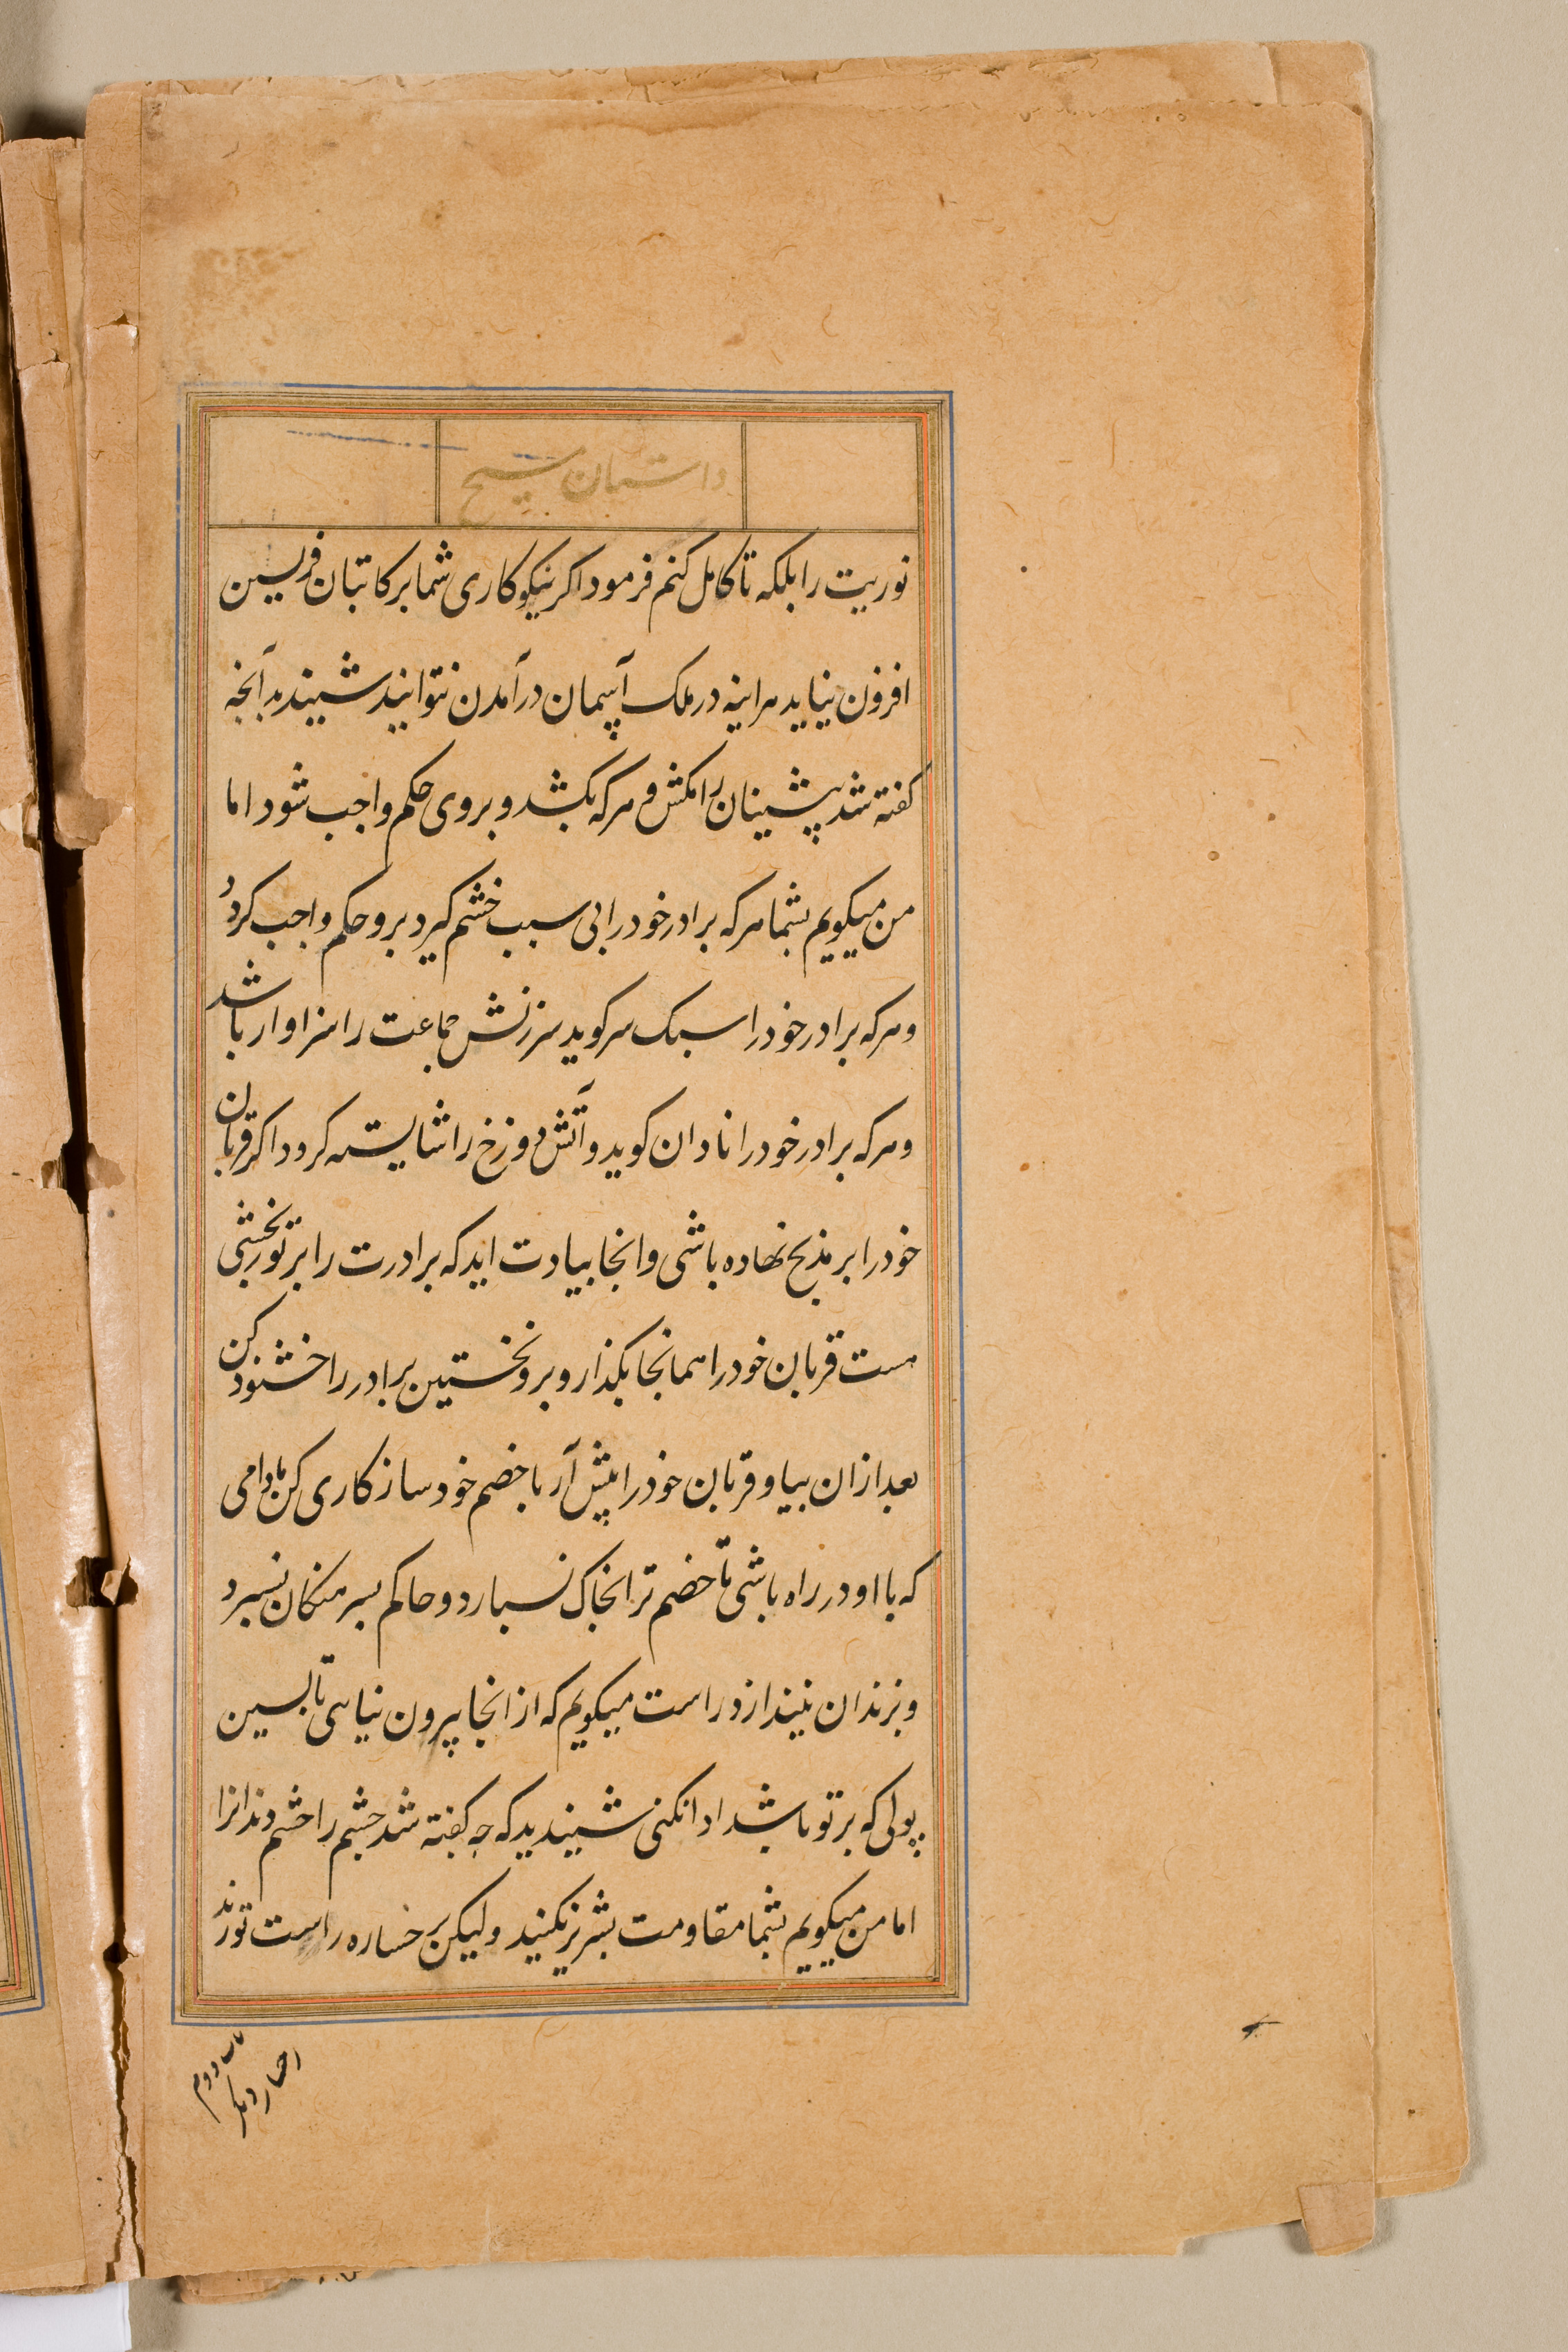 داستان مسیح
توریت را بلکه تا کامل کنم فرمود اکر نیکوکاری شما بر کاتبان فریسین
افزون نیاید هراینه در ملک آسمان درآمدن نتوانید شنیدید آنچه
کفته شد پیشینان را مکش و هرکه بکشد و بروی حکم واجب شود اما
من میکویم بشما هرکه برادر خود را بی سبب خشم کیرد برو حکم واجب کردد
و هرکه برادر خود را سبک سر کوید سرزنش جماعت را سزاوار باشد
و هرکه برادر خود را نادان کوید و آتش دوزخ را شایسته کردد اکر قربان
خود را بر مذبح نهاده باشی و انجا بیادت اید که برادرت را بر تو رنجشی
هست قربان خود را همانجا بکذار و برو نخستین برادر را خشنود کن
بعد ازان بیا و قربان خود را پیش آر با خصم خود سازکاری کن مادامی
که با او در راه باشی تا خصم ترا بحاکم نسپارد و حاکم بسرهنکان نسپرد
و بزندان نیندازد راست میکویم که از انجا بیرون نیایی تا پسین
پولی که بر تو باشد ادا نکنی شنیدید که چه کفته شد چشم را چشم دندانرا
اما من میکویم بشما مقاومت بشریر نکنید ولیکن بر خساره راست تو زند